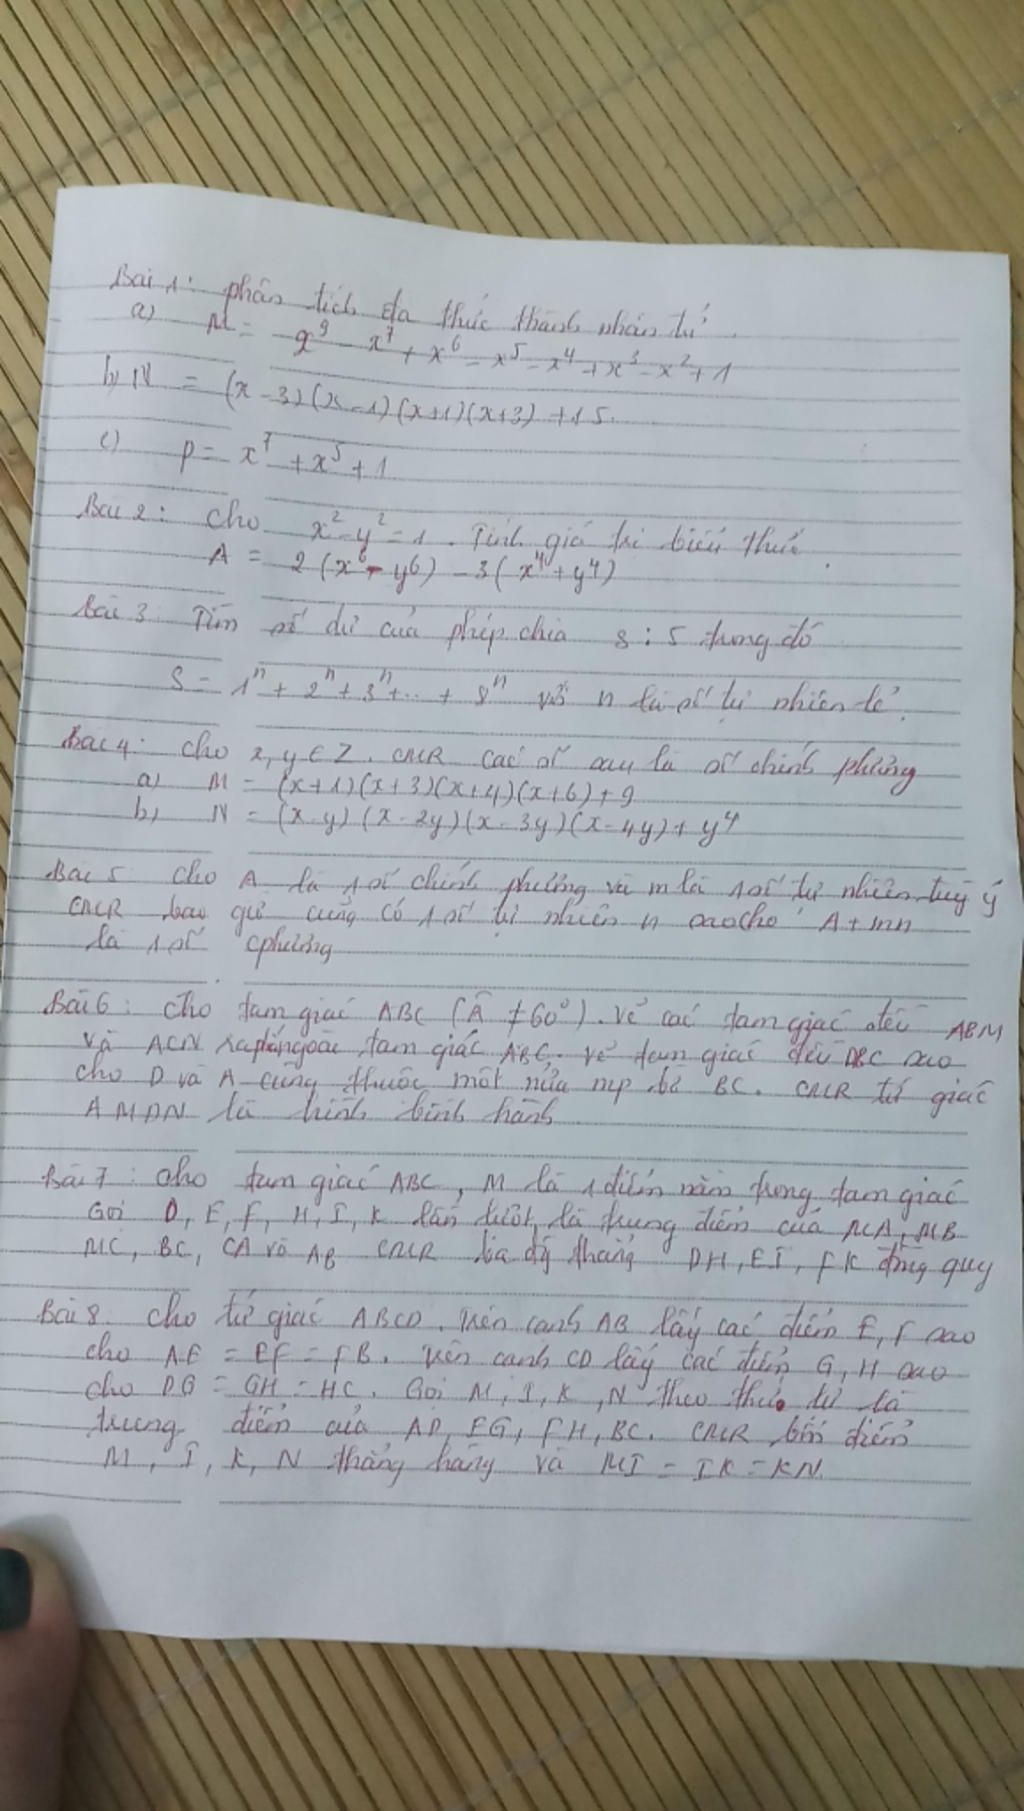 Bài 1: phân tích đa thức thành nhân tử.
a) M = x⁹ - x⁷ + x⁶ - x⁵ - x⁴ + x³ - x² + 1
b) N = (x-3)(x-1)(x+1)(x+3) + 15.
c) P = x⁷ + x⁵ + 1
Bài 2: Cho x² - y² = 1. Tính giá trị biểu thức
A = 2(x⁶ - y⁶) - 3(x⁴ + y⁴)
Bài 3: Tìm số dư của phép chia S : 5 trong đó
S = 1ⁿ + 2ⁿ + 3ⁿ + ... + 8ⁿ với n là số tự nhiên lẻ.
Bài 4: Cho x, y ∈ Z. CMR các số sau là số chính phương
a) M = (x+1)(x+3)(x+4)(x+6) + 9
b) N = (x-y)(x-2y)(x-3y)(x-4y) + y⁴
Bài 5: Cho A là 1 số chính phương và m là 1 số tự nhiên tuỳ ý
CMR bao giờ cũng có 1 số tự nhiên n sao cho A + mn
là 1 số cphương
Bài 6: Cho tam giác ABC (Â ≠ 60°). Vẽ các tam giác đều ABM
và ACN ra phía ngoài tam giác ABC. Vẽ tam giác đều DBC sao
cho D và A cùng thuộc một nửa mp bờ BC. CMR tứ giác
AMDN là hình bình hành
Bài 7: Cho tam giác ABC, M là 1 điểm nằm trong tam giác
Gọi D, E, F, H, I, K lần lượt là trung điểm của MA, MB
MC, BC, CA và AB CMR ba đg thẳng DH, EI, FK đồng quy
Bài 8: Cho tứ giác ABCD. Trên cạnh AB lấy các điểm E, F sao
cho AE = EF = FB. Trên cạnh CD lấy các điểm G, H sao
cho DG = GH = HC. Gọi M, I, K, N theo thứ tự là
trung điểm của AD, EG, FH, BC. CMR bốn điểm
M, I, K, N thẳng hàng và MI = IK = KN.